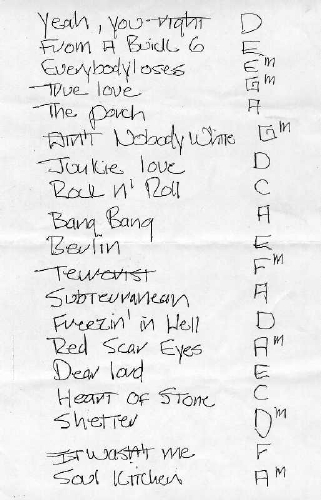 Yeah, you right D
From A Buick 6 E
Everybody loses Em
True love Gm
The porch A
Ain't Nobody White Gm
Junkie love D
Rock n' Roll C
Bang Bang A
Berlin E
Terrorist Fm
Subterranean A
Freezin' in Hell D
Red Scar Eyes Am
Dear lord E
Heart of Stone C
Shelter Dm
It wasn't me F
Soul Kitchen Am